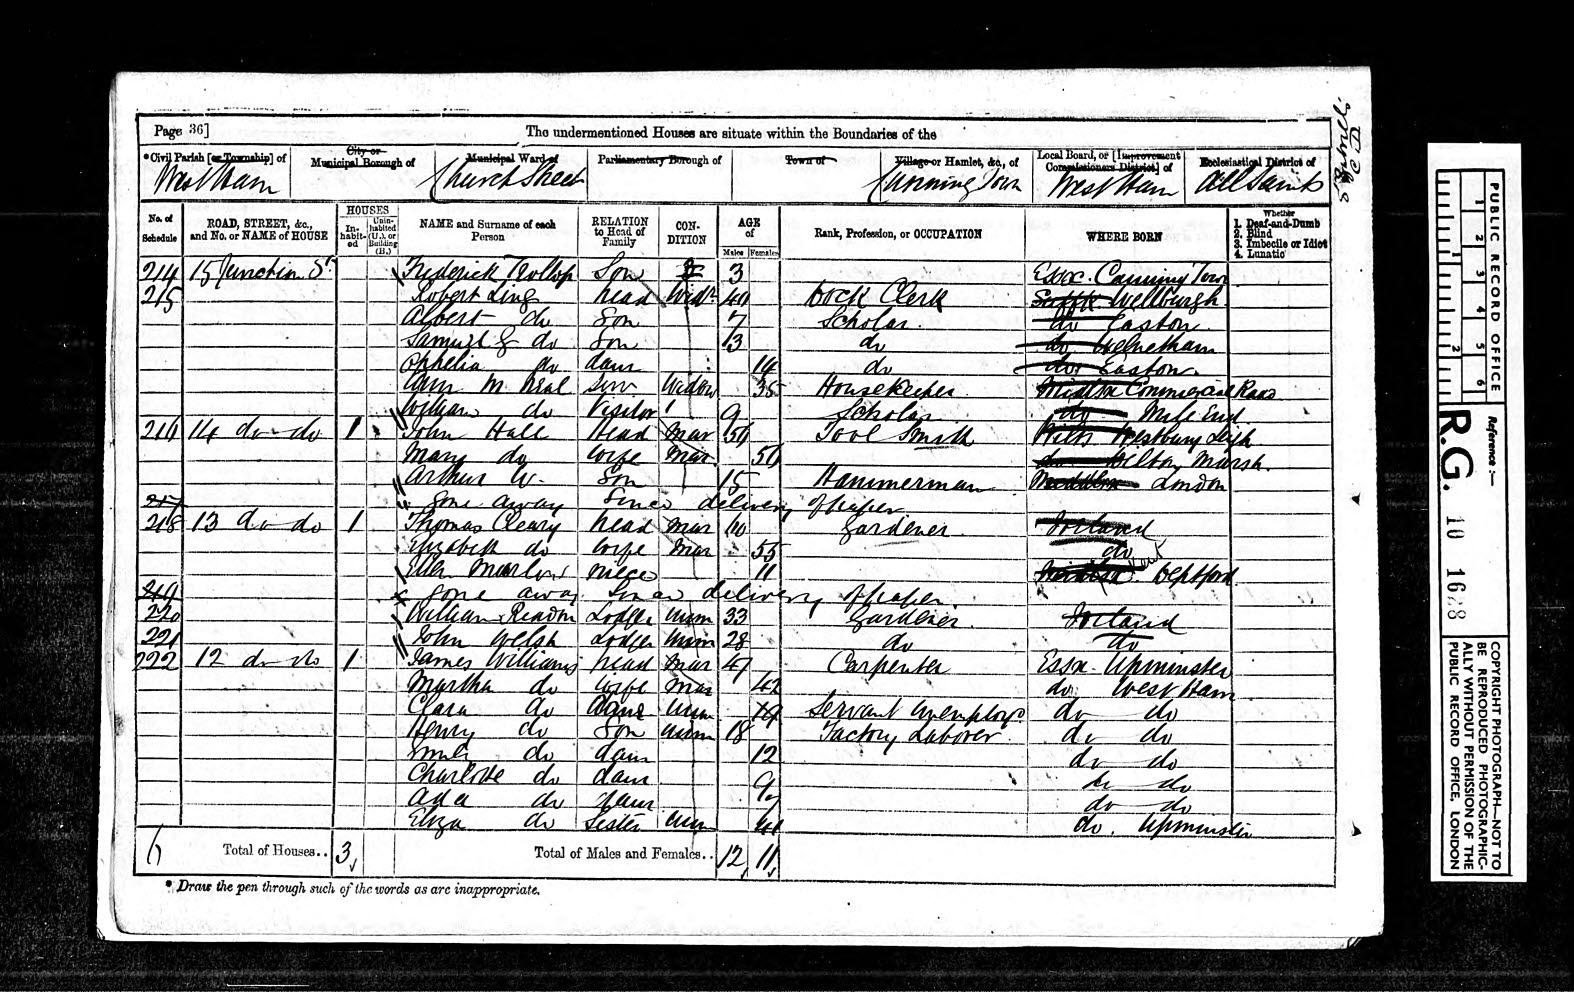 Page 36]
The undermentioned Houses are situate within the Boundaries of the
*Civil Parish [or Township] of
City or Municipal Borough of
Municipal Ward of
Parliamentary Borough of
Town of
Village or Hamlet, &c., of
Local Board, or [Improvement Commissioners District] of
Ecclesiastical District of
West Ham Church Street Cunning Town West Ham All Saints
No. of Schedule
ROAD, STREET, &c., and No. or NAME of HOUSE
HOUSES
In-habit-ed
Unin-habited (U.), or Building (B.)
NAME and Surname of each Person
RELATION to Head of Family
CON-DITION
AGE of
Males Females
Rank, Profession, or OCCUPATION
WHERE BORN
Whether
1. Deaf-and-Dumb
2. Blind
3. Imbecile or Idiot
4. Lunatic
214 15 Junction St Frederick Trollop Son 3 Essex Canning Town
215 Robert Ling head Widr 40 Dock Clerk Suffolk
Albert do Son 7 Scholar do Easton
Samuel G do Son 13 do do
Ophelia do daur 14 do do Easton
Ann M Neal Widow 35 Housekeeper Middlsx Commercial Road
William do Visitor 9 Scholar do Mile End
216 14 do do 1 John Hall Head Mar 56 Tool Smith Wilts Westbury Leigh
Mary do Wife Mar 56 do Marsh
Arthur W. Son 15 Hammerman Middlesex London
217 Gone away Since delivery of paper
218 13 do do 1 Thomas Cleary head Mar 60 Gardener Ireland
Elizabeth do Wife Mar 55 do
niece 11 Kent Deptford
219 Gone away Since delivery of paper
220 William Lodger Unm 33 Gardener Ireland
221 John Welsh Lodger Unm 28 do do
222 12 do do 1 James Williams head Mar 47 Carpenter Essex Upminster
Martha do Wife Mar 42 do West Ham
Clara do daur Unm 19 Servant Unemployd do do
Henry do Son Unm 18 Factory Laborer do do
do daur 12 do do
Charlotte do daur 9 do do
Ada do daur do do
Eliza do Sister Unm do Upminster
6 Total of Houses.. 3 Total of Males and Females.. 12 11
* Draw the pen through such of the words as are inappropriate.
PUBLIC RECORD OFFICE
1 2 3 4 5 6
1 2
Reference :—
R.G. 10 1688
COPYRIGHT PHOTOGRAPH—NOT TO BE REPRODUCED PHOTOGRAPHIC-ALLY WITHOUT PERMISSION OF THE PUBLIC RECORD OFFICE, LONDON